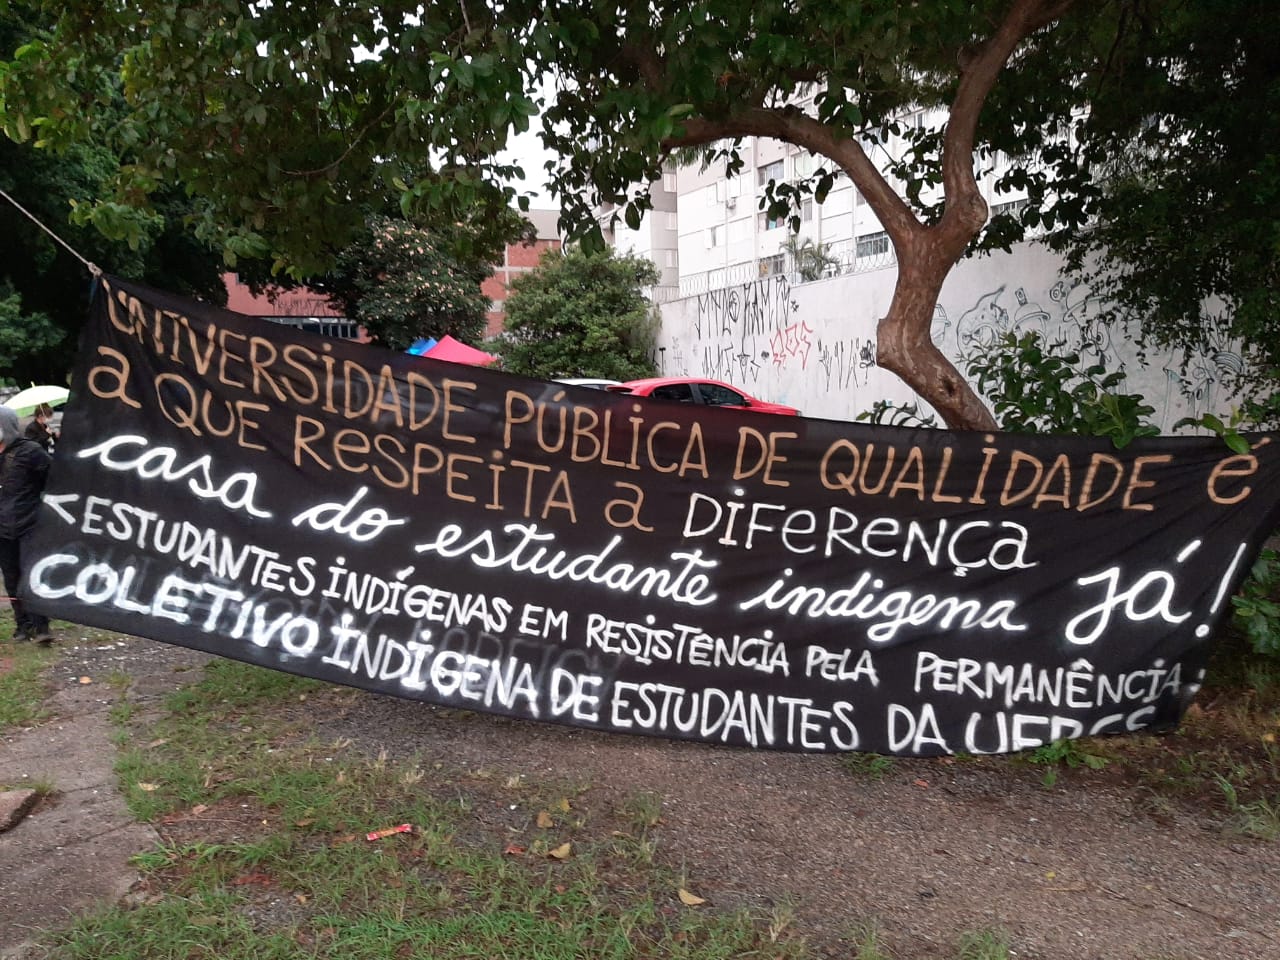 UNIVERSIDADE PÚBLICA DE QUALIDADE É
a QUE RESPEITA a DIFERENÇA
casa do estudante indígena JÁ!
<ESTUDANTES INDÍGENAS EM RESISTÊNCIA PELA PERMANÊNCIA
COLETIVO INDÍGENA DE ESTUDANTES DA UFRGS